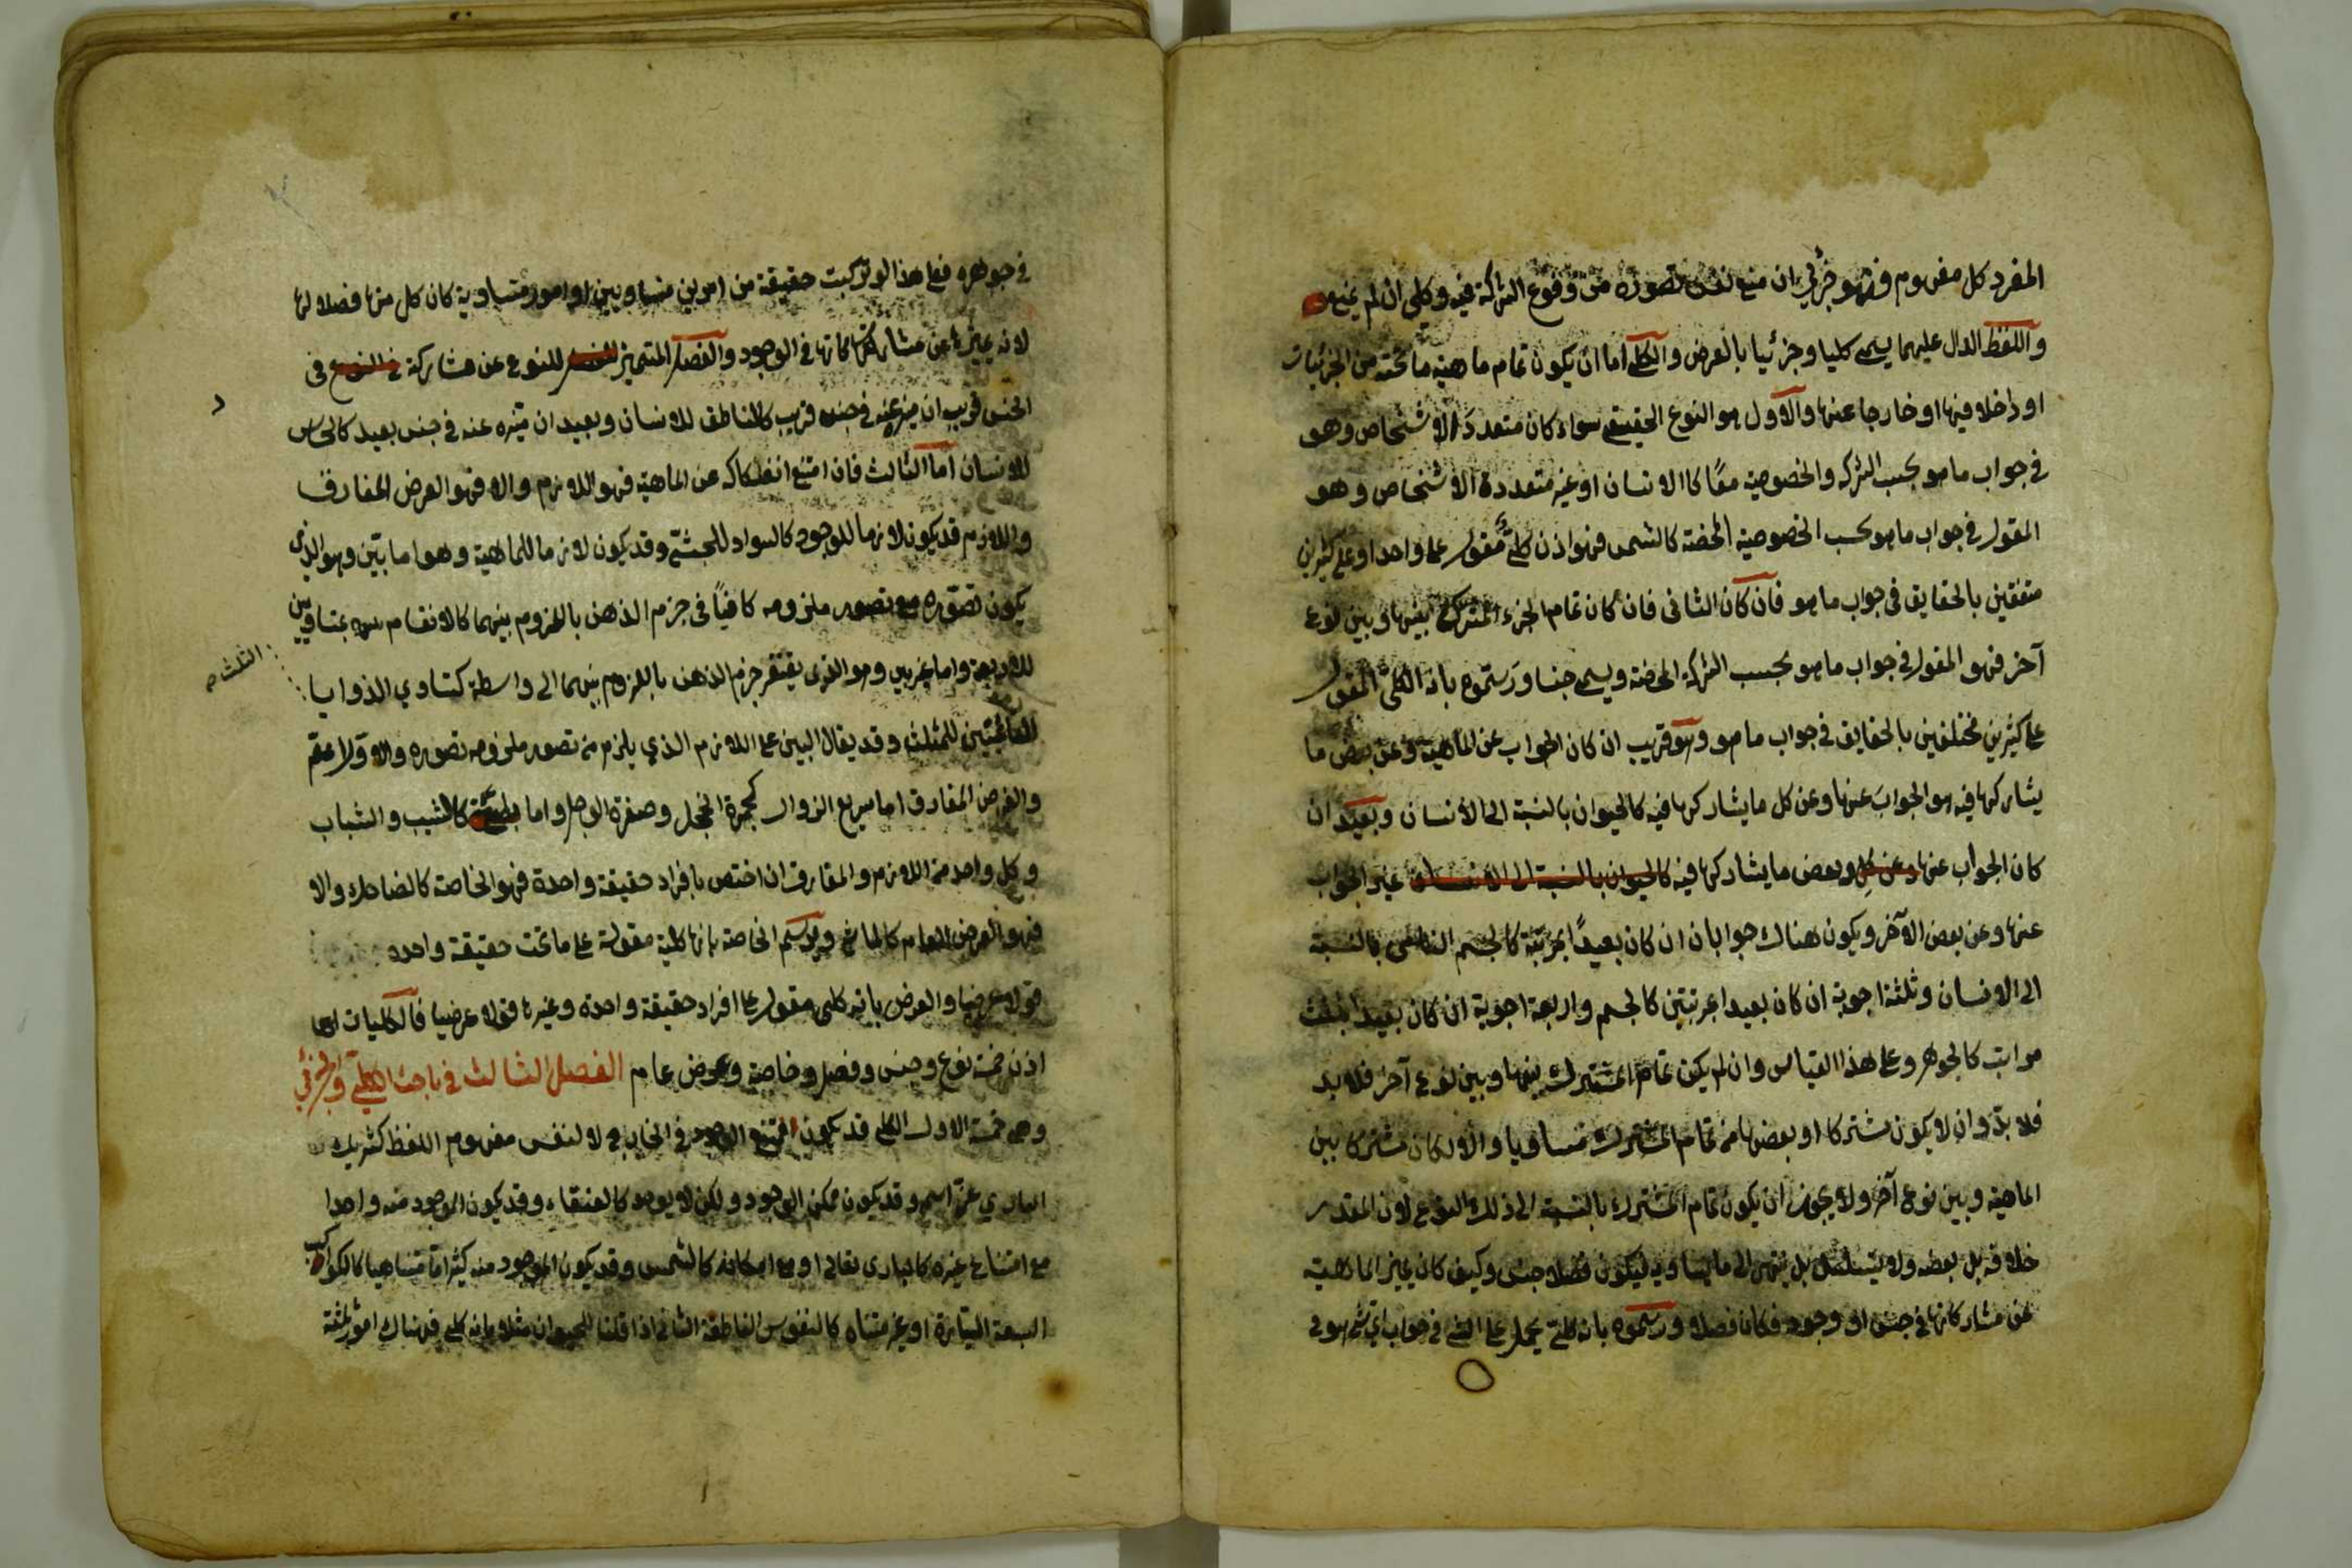 المفرد كل مفهوم فهو جزئي ان منع نفس تصوره من وقوع الشركة فيه وكلي ان لم يمنع
واللفظ الدال عليهما يسمى كليا وجزئيا بالعرض والكلي اما ان يكون تمام ماهية ما تحته من الجزئيات
او داخلا فيها او خارجا عنها والاول هو النوع الحقيقي سواء كان متعدد الاشخاص وهو
في جواب ما هو بحسب الشركه والخصوصية معًا كالانسان او غير متعددة الاشخاص وهو
المقول في جواب ما هو بحسب الخصوصية المحضة كالشمس فهو اذن كليٌّ مقول على واحد او على كثيرين
متفقين بالحقايق في جواب ما هو فان كان الثانى فان كان تمام الجزء المشترك بينها وبين نوع
آخر فهو المقول في جواب ما هو بحسب الشركة المحضة ويسمى جنسا ورسموه بانه الكلي المقول
على كثيرين مختلفين بالحقايق في جواب ما هو وهو قريب ان كان الجواب عن الماهية وعن بعض ما
يشاركها فيه هو الجوابَ عنها وعن كل ما يشاركها فيه كالحيوان بالنسبة الى الأنسان وبعيد ان
كان الجواب عنها وعن كل وبعض ما يشاركها فيه كالحيوان بالنسبة الى الانسان غير الجواب
عنها وعن بعض الآخر ويكون هناك جوابان ان كان بعيدًا بمرتبة كالجسم النامى بالنسبة
الى الانسان وثلثة اجوبة ان كان بعيدا بمرتبتين كالجسم واربعة اجوبة ان كان بعيدا بثلث
مراتب كالجوهر وعلى هذا القياس وان لم يكن تمام المشترك بينها وبين نوع آخر فلا بد
فلا بدّ وان لا يكون مشتركا او بعضها من تمام المشترك مساويا والا لكان مشتركا بين
الماهية وبين نوع آخر ولا يجوز ان يكون تمام المشترك بالنسبة الى ذلك النوع لان المقدر
خلافه بل بعضه ولا يتسلسل بل ينتهي الى ما يساويه فيكون فصلا جنس وكيف كان يميز الماهية
عن مشاركاتها في جنس او وجود فكان فصلا ورسموه بانه كليّ يحمل على الشئ في جواب اي شئ هو في
في جوهره فعلى هذا لو تركبت حقيقة من امرين متساويين او امور متساوية كان كل منها فصلا لها
لانه يميزها عن مشاركاتها في الوجود والفصل المتميز للنوع عن مشاركة في النوع فى
الجنس قريب ان ميزه عنه في جنس قريب كالناطق للانسان وبعيد ان ميّزه عنه في جنس بعيد كالحساس
للانسان اما الثالث فان امتنع انفكاكه عن الماهية فهو اللازم والا فهو العرض المفارق
واللازم قد يكون لازما للوجود كالسواد للحبشيّ وقد يكون لازما للماهية وهو اما بيّن وهو الذى
يكون تصوّره مع تصور ملزومه كافيًا فى جزم الذهن باللزوم بينهما كالانقسام بمتساويين
للاربعة واما غير بين وهو الذى يفتقر جزم الذهن باللزوم بينهما الى واسطة كتساوي الزوايا
الثلث
القائمتين للمثلث وقد يقال البين على اللازم الذي يلزم من تصور ملزومه تصوره والاول اعم
والعرض المفارق اما سريع الزوال كحمرة الخجل وصفرة الوجل واما بطيئه كالشيب والشباب
وكل واحد من اللازم والمفارق ان اختص بافراد حقيقة واحدة فهو الخاصة كالضاحك والا
فهو العرض العام كالماشي ويرسم الخاصة بانها كلية مقولة على ما تحت حقيقة واحده
قولا عرضيا والعرض بانه كلى مقول على افراد حقيقة واحدة وغيرها قولا عرضيا فالكليات
اذن خمسة نوع وجنس وفصل وخاصة وعرض عام الفصل الثالث في مباحث الكلي والجزئي
وهي خمسة الاول الكلي قد يكون ممتنع الوجود في الخارج لا لنفس مفهوم اللفظ كشريك
الباري عزّ اسمه وقد يكون ممكن الوجود ولكن لا يوجد كالعنقاء وقد يكون الموجود منه واحدا
مع امتناع غيره كالبارى تعالى او مع امكانه كالشمس وقد يكون الموجود منه كثيرا اما متناهيا كالكواكب
السبعة السيّارة او غير متناه كالنفوس الناطقة الثانى اذا قلنا للحيوان مثلا بانه كلى فهناك امور ثلثة